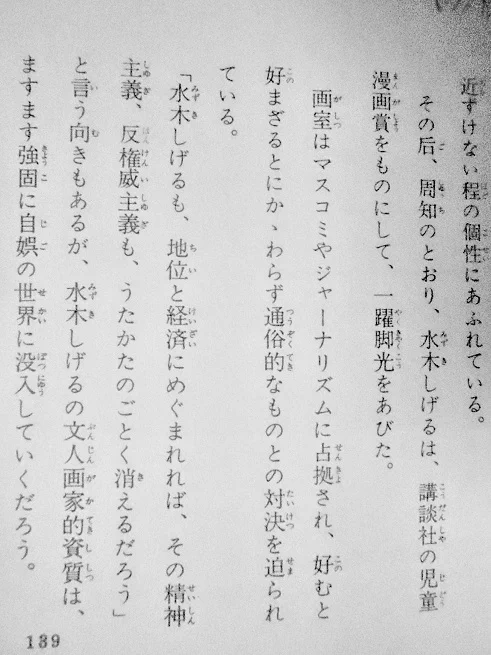 近ずけない程の個性にあふれている。
その后、周知のとおり、水木しげるは、講談社の児童
漫画賞をものにして、一躍脚光をあびた。
画室はマスコミやジャーナリズムに占拠され、好むと
好まざるとにかゝわらず通俗的なものとの対決を迫られ
ている。
「水木しげるも、地位と経済にめぐまれれば、その精神
主義、反権威主義も、うたかたのごとく消えるだろう」
と言う向きもあるが、水木しげるの文人画家的資質は、
ますます強固に自娯の世界に没入していくだろう。
139